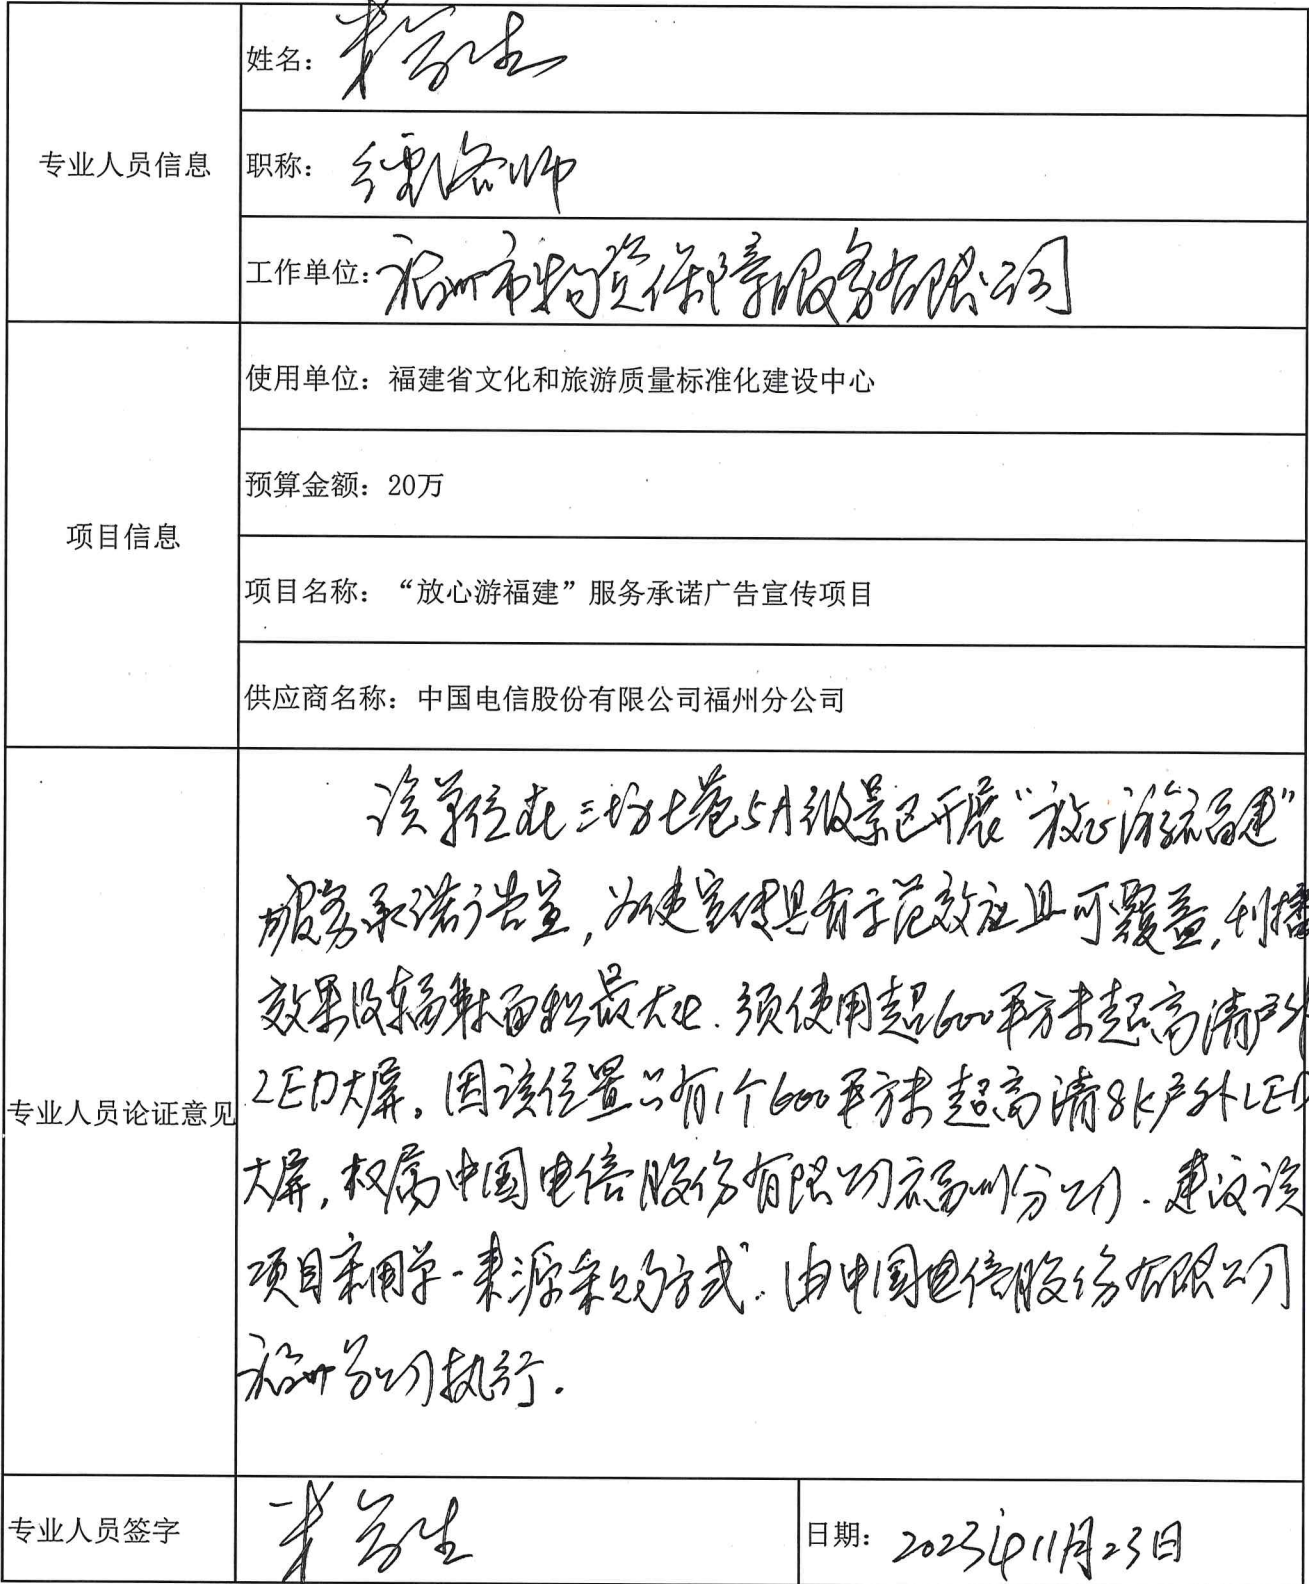 专业人员信息
姓名：
职称：经济师
工作单位：福州市物资保障服务有限公司
项目信息
使用单位：福建省文化和旅游质量标准化建设中心
预算金额：20万
项目名称：“放心游福建”服务承诺广告宣传项目
供应商名称：中国电信股份有限公司福州分公司
专业人员论证意见
该单位在三坊七巷5A级景区开展“放心游福建”
服务承诺广告宣，为使宣传具有示范效应且可覆盖，刊播
效果及辐射面积最大化．须使用超600平方米超高清户外
LED大屏。因该位置只有1个600平方米超高清8K户外LED
大屏，权属中国电信股份有限公司福州分公司．建议该
项目采用单一来源采购方式．由中国电信股份有限公司
福州分公司执行．
专业人员签字
日期：2023年11月23日